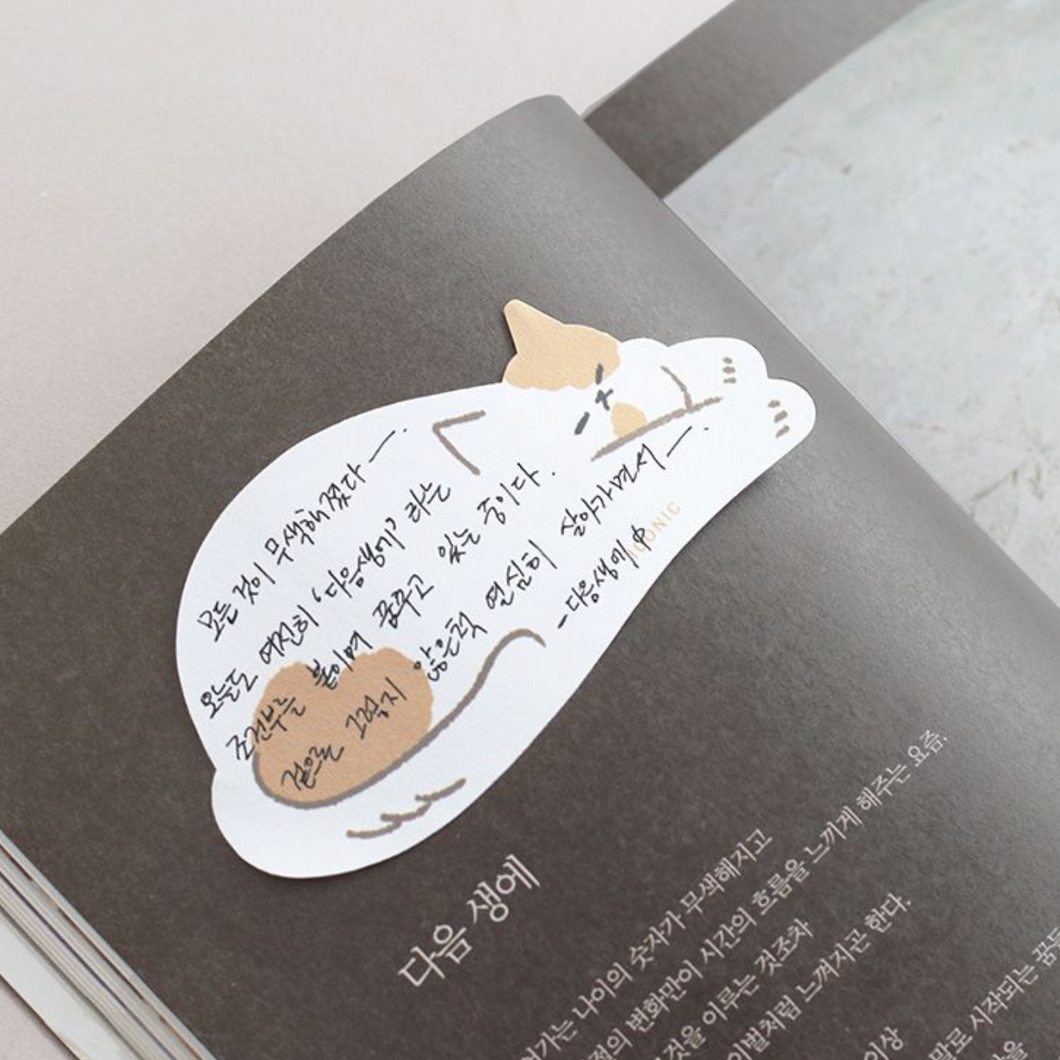 모든 것이 무색해졌다 —.
오늘도 여전히 '다음생에' 라는
조건부를 붙이며 꿈꾸고 있는 중이다.
겉으론 그렇지 않은척 열심히 살아가면서 —.
- 다음생에 中
ICONIC
다음 생에
가는 나이의 숫자가 무색해지고
변화만이 시간의 흐름을 느끼게 해주는 요즘.
것을 이루는 것조차
이별처럼 느껴지곤 한다.
이상
바로 시작되는